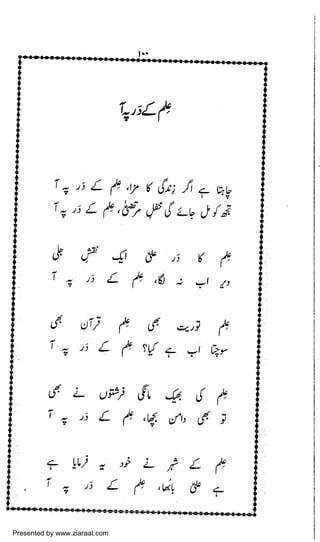 ۱۰۰
عِلم کے دَر پہ آ
چاہتا ہے اگر زِندگی کا مزا، عِلم کے دَر پہ آ
تجھ کو مل جائے گی محفلِ مرتضیٰؑ، عِلم کے دَر پہ آ
عِلم کا دَر علیؑ ایک نقشِ جلی
دیر اب نہ لگا، عِلم کے دَر پہ آ
عِلم توریت بھی عِلم قرآن بھی
سوچتا اب ہے کیا؟ عِلم کے دَر پہ آ
عِلم کی بھیک مانگی فرشتوں نے بھی
تو بھی دامن بچھا، عِلم کے دَر پہ آ
عِلم کے شہر نے خود یہ فرمایا ہے
ہے علیؑ بابُھا، عِلم کے دَر پہ آ
Presented by www.ziaraat.com